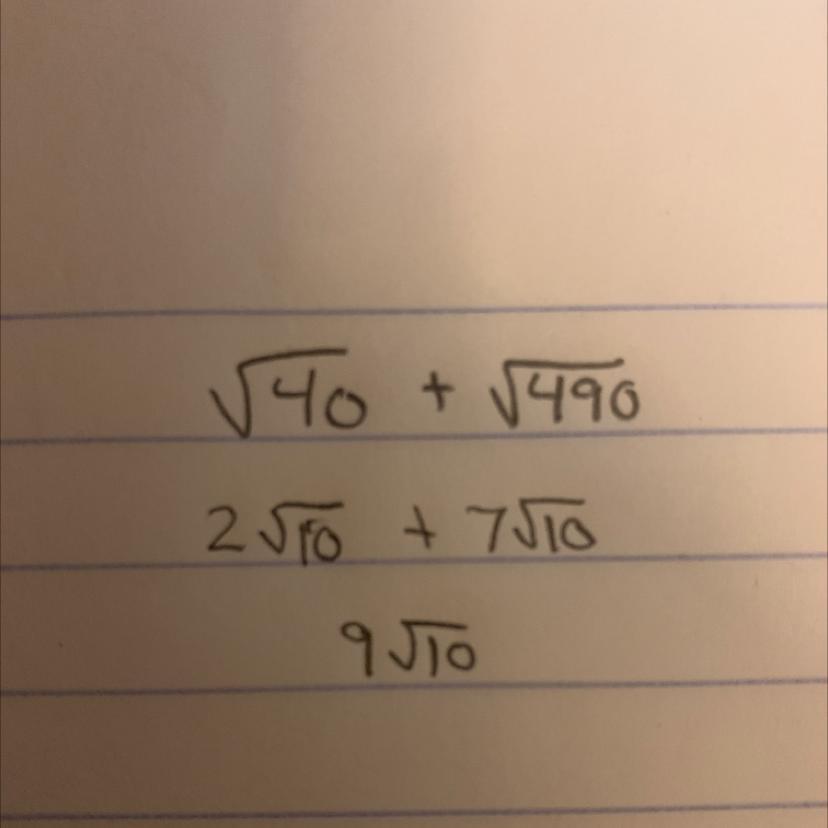 √40 + √490
2√10 + 7√10
9√10